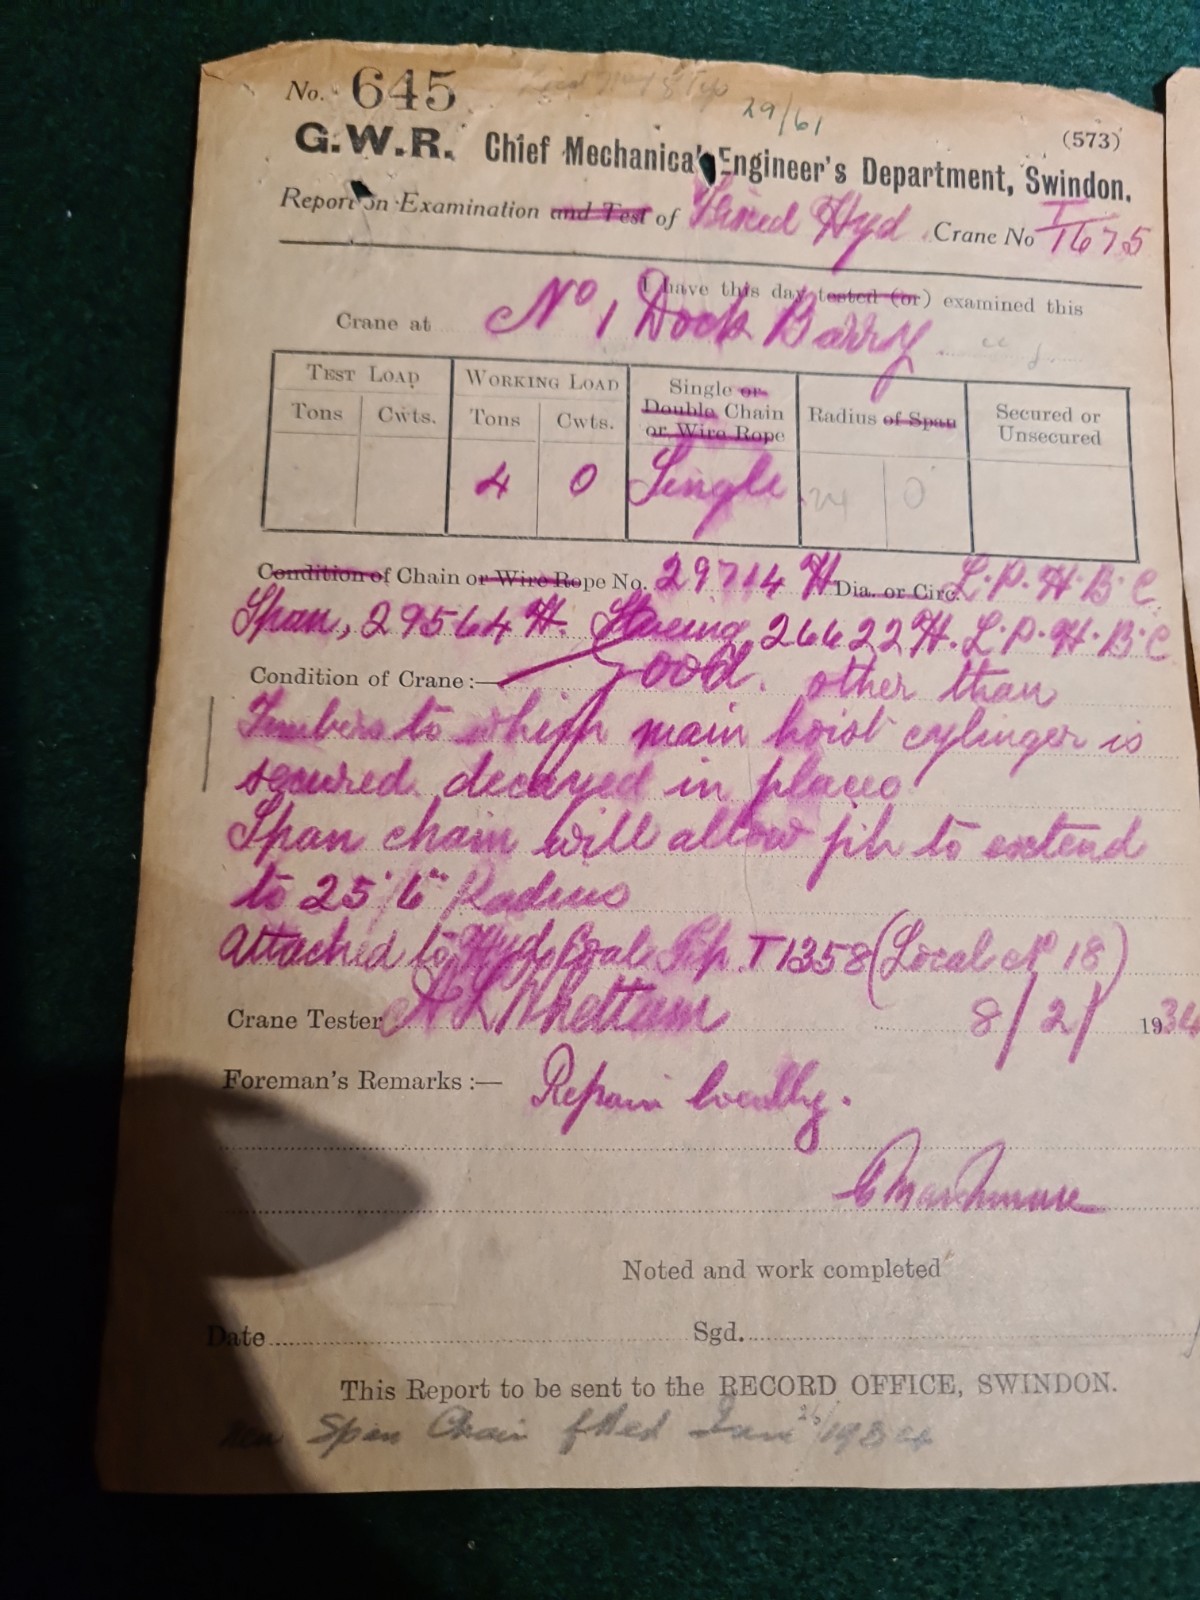 No. 645
29/61
(573)
G.W.R. Chief Mechanical Engineer's Department, Swindon.
Report on Examination and Test of Fixed Hyd. Crane No T/1675
I have this day tested (or) examined this
Crane at No 1 Dock Barry
TEST LOAD WORKING LOAD Single or Double Chain or Wire Rope Radius of Span Secured or Unsecured
Tons Cwts. Tons Cwts.
4 0 Single 24 0
Condition of Chain or Wire Rope No. 29714 H Dia. or Circ. L.P.H.B.C.
Span, 29564 H. Slueing 26622 H. L.P.H.B.C
Condition of Crane:— Good. other than
Timbers to which main hoist cylinger is
secured decayed in places
Span chain will allow jib to extend
to 25' 6" Radius
Attached to Hyd Coal Tip T1358 (Local No 18)
Crane Tester 8/2/ 1934
Foreman's Remarks:— Repair locally.
Noted and work completed
Date Sgd.
This Report to be sent to the RECORD OFFICE, SWINDON.
new Span Chain fitted Jan 1934